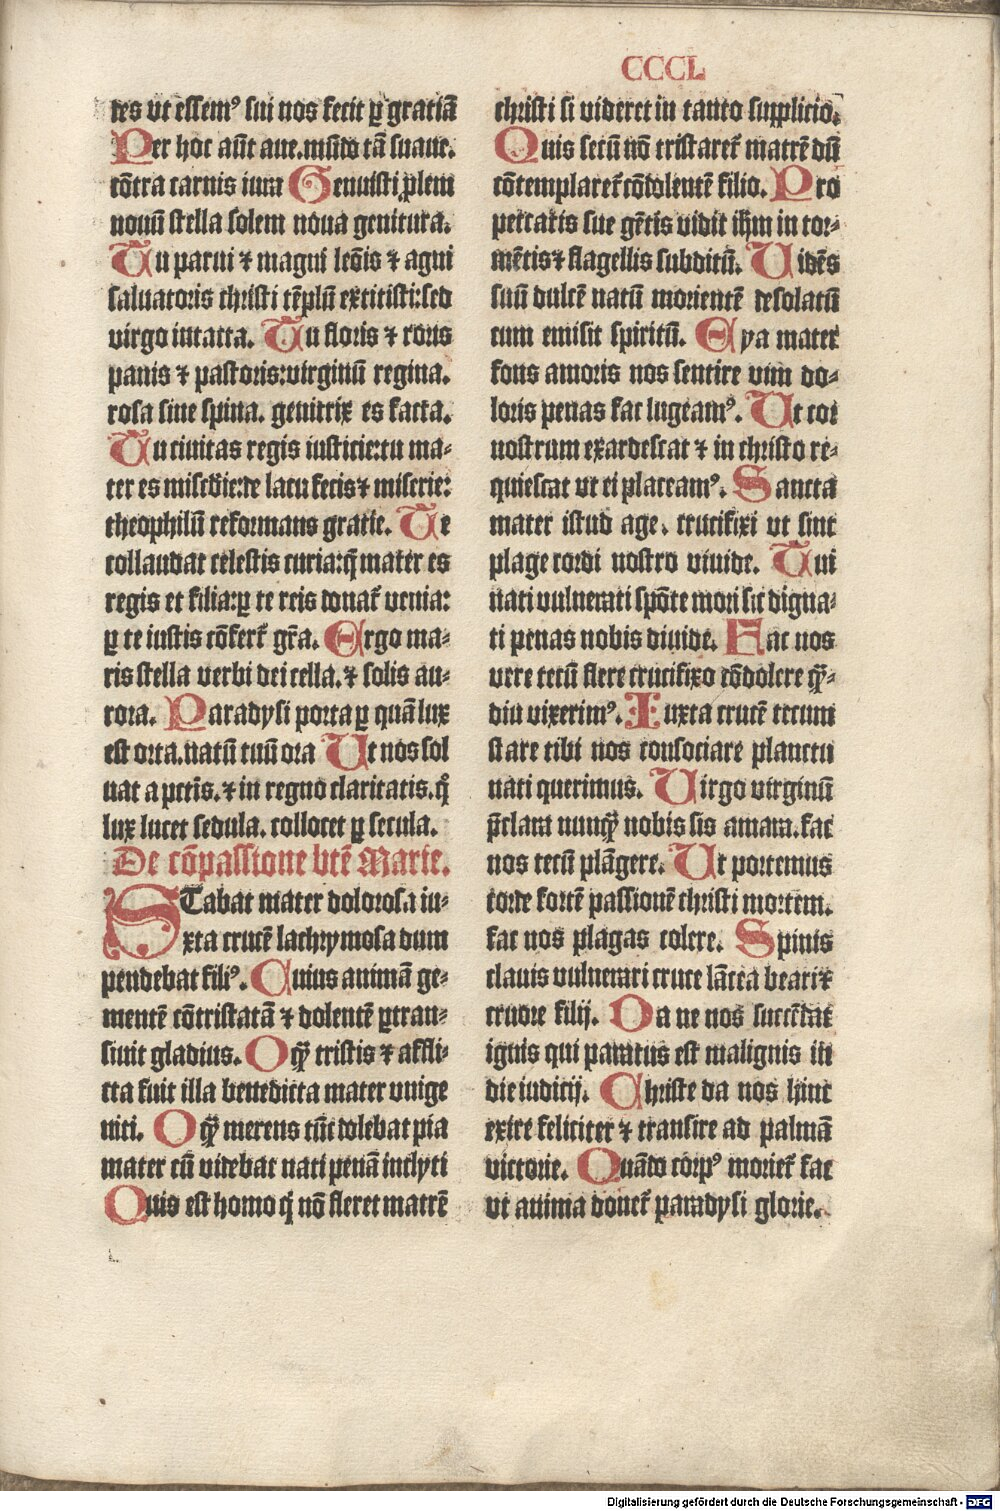 CCCL
des vt essemꝰ sui nos fecit ꝑ gratiā
Per hoc aūt aue. mūdo tā suaue.
cōtra carnis iura Genuisti ꝓlem
nouū stella solem noua genitura.
Tu parui ⁊ magni leōis ⁊ agni
saluatoris christi tēplū extitisti: sed
virgo intacta. Tu floris ⁊ roris
panis ⁊ pastoris: virginū regina.
rosa sine spina. genitrix es facta.
Tu ciuitas regis iusticie: tu ma⸗
ter es misc̄die: de lacu fecis ⁊ miserie:
theophilū reformans gratie. Te
collaudat celestis curia: q̄ mater es
regis et filia: ꝑ te reis donat᷑ venia:
ꝑ te iustis cōfert᷑ gr̄a. Ergo ma⸗
ris stella verbi dei cella. ⁊ solis au⸗
rora. Paradysi porta ꝑ quā lux
est orta. natū tuū ora Ut nos sol
uat a pctīs. ⁊ in regno claritatis. qͦ
lux lucet sedula. collocet ꝑ secula.
De cōpassione btē Marie.
STabat mater dolorosa iu⸗
xta crucē lachrymosa dum
pendebat filiꝰ. Cuius animā ge⸗
mentē cōtristatā ⁊ dolentē ꝑtran⸗
siuit gladius. O qꝫ tristis ⁊ affli⸗
cta fuit illa benedicta mater vnige
niti. O qꝫ merens tūc dolebat pia
mater cū videbat nati penā inclyti
Quis est homo q̄ nō fleret matrē
christi si videret in tanto supplicio.
Quis secū nō tristaret᷑ matrē dū
cōtemplaret᷑ cōdolentē filio. Pro
peccatis sue gētis vidit ihm̄ in tor⸗
mētis ⁊ flagellis subditū. Uidēs
suū dulcē natū morientē desolatū
cum emisit spiritū. Eya mater
fons amoris nos sentire vim do⸗
loris penas fac lugeamꝰ. Ut cor
nostrum exardescat ⁊ in christo re⸗
quiescat vt ei placeamꝰ. Sancta
mater istud age. crucifixi vt sint
plage cordi nostro viuide. Tui
nati vulnerati spōte mori sic digna⸗
ti penas nobis diuide. Fac nos
vere tecū flere crucifixo cōdolere qꝫ⸗
diu vixerimꝰ. Iuxta crucē tecum
stare tibi nos consociare planctu
nati querimus. Uirgo virginū
p̄clara nunqꝫ nobis sis amara. fac
nos tecū plāgere. Ut portemus
corde fortē passionē christi mortem.
fac nos plagas colere. Spinis
clauis vulnerari cruce lācea beari ⁊
cruore filij. Da ne nos succēdat
ignis qui paratus est malignis in
die iudicij. Christe da nos hinc
exire feliciter ⁊ transire ad palmā
victorie. Quādo corpꝰ moriet᷑ fac
vt anima donet᷑ paradysi glorie.
Digitalisierung gefördert durch die Deutsche Forschungsgemeinschaft - DFG